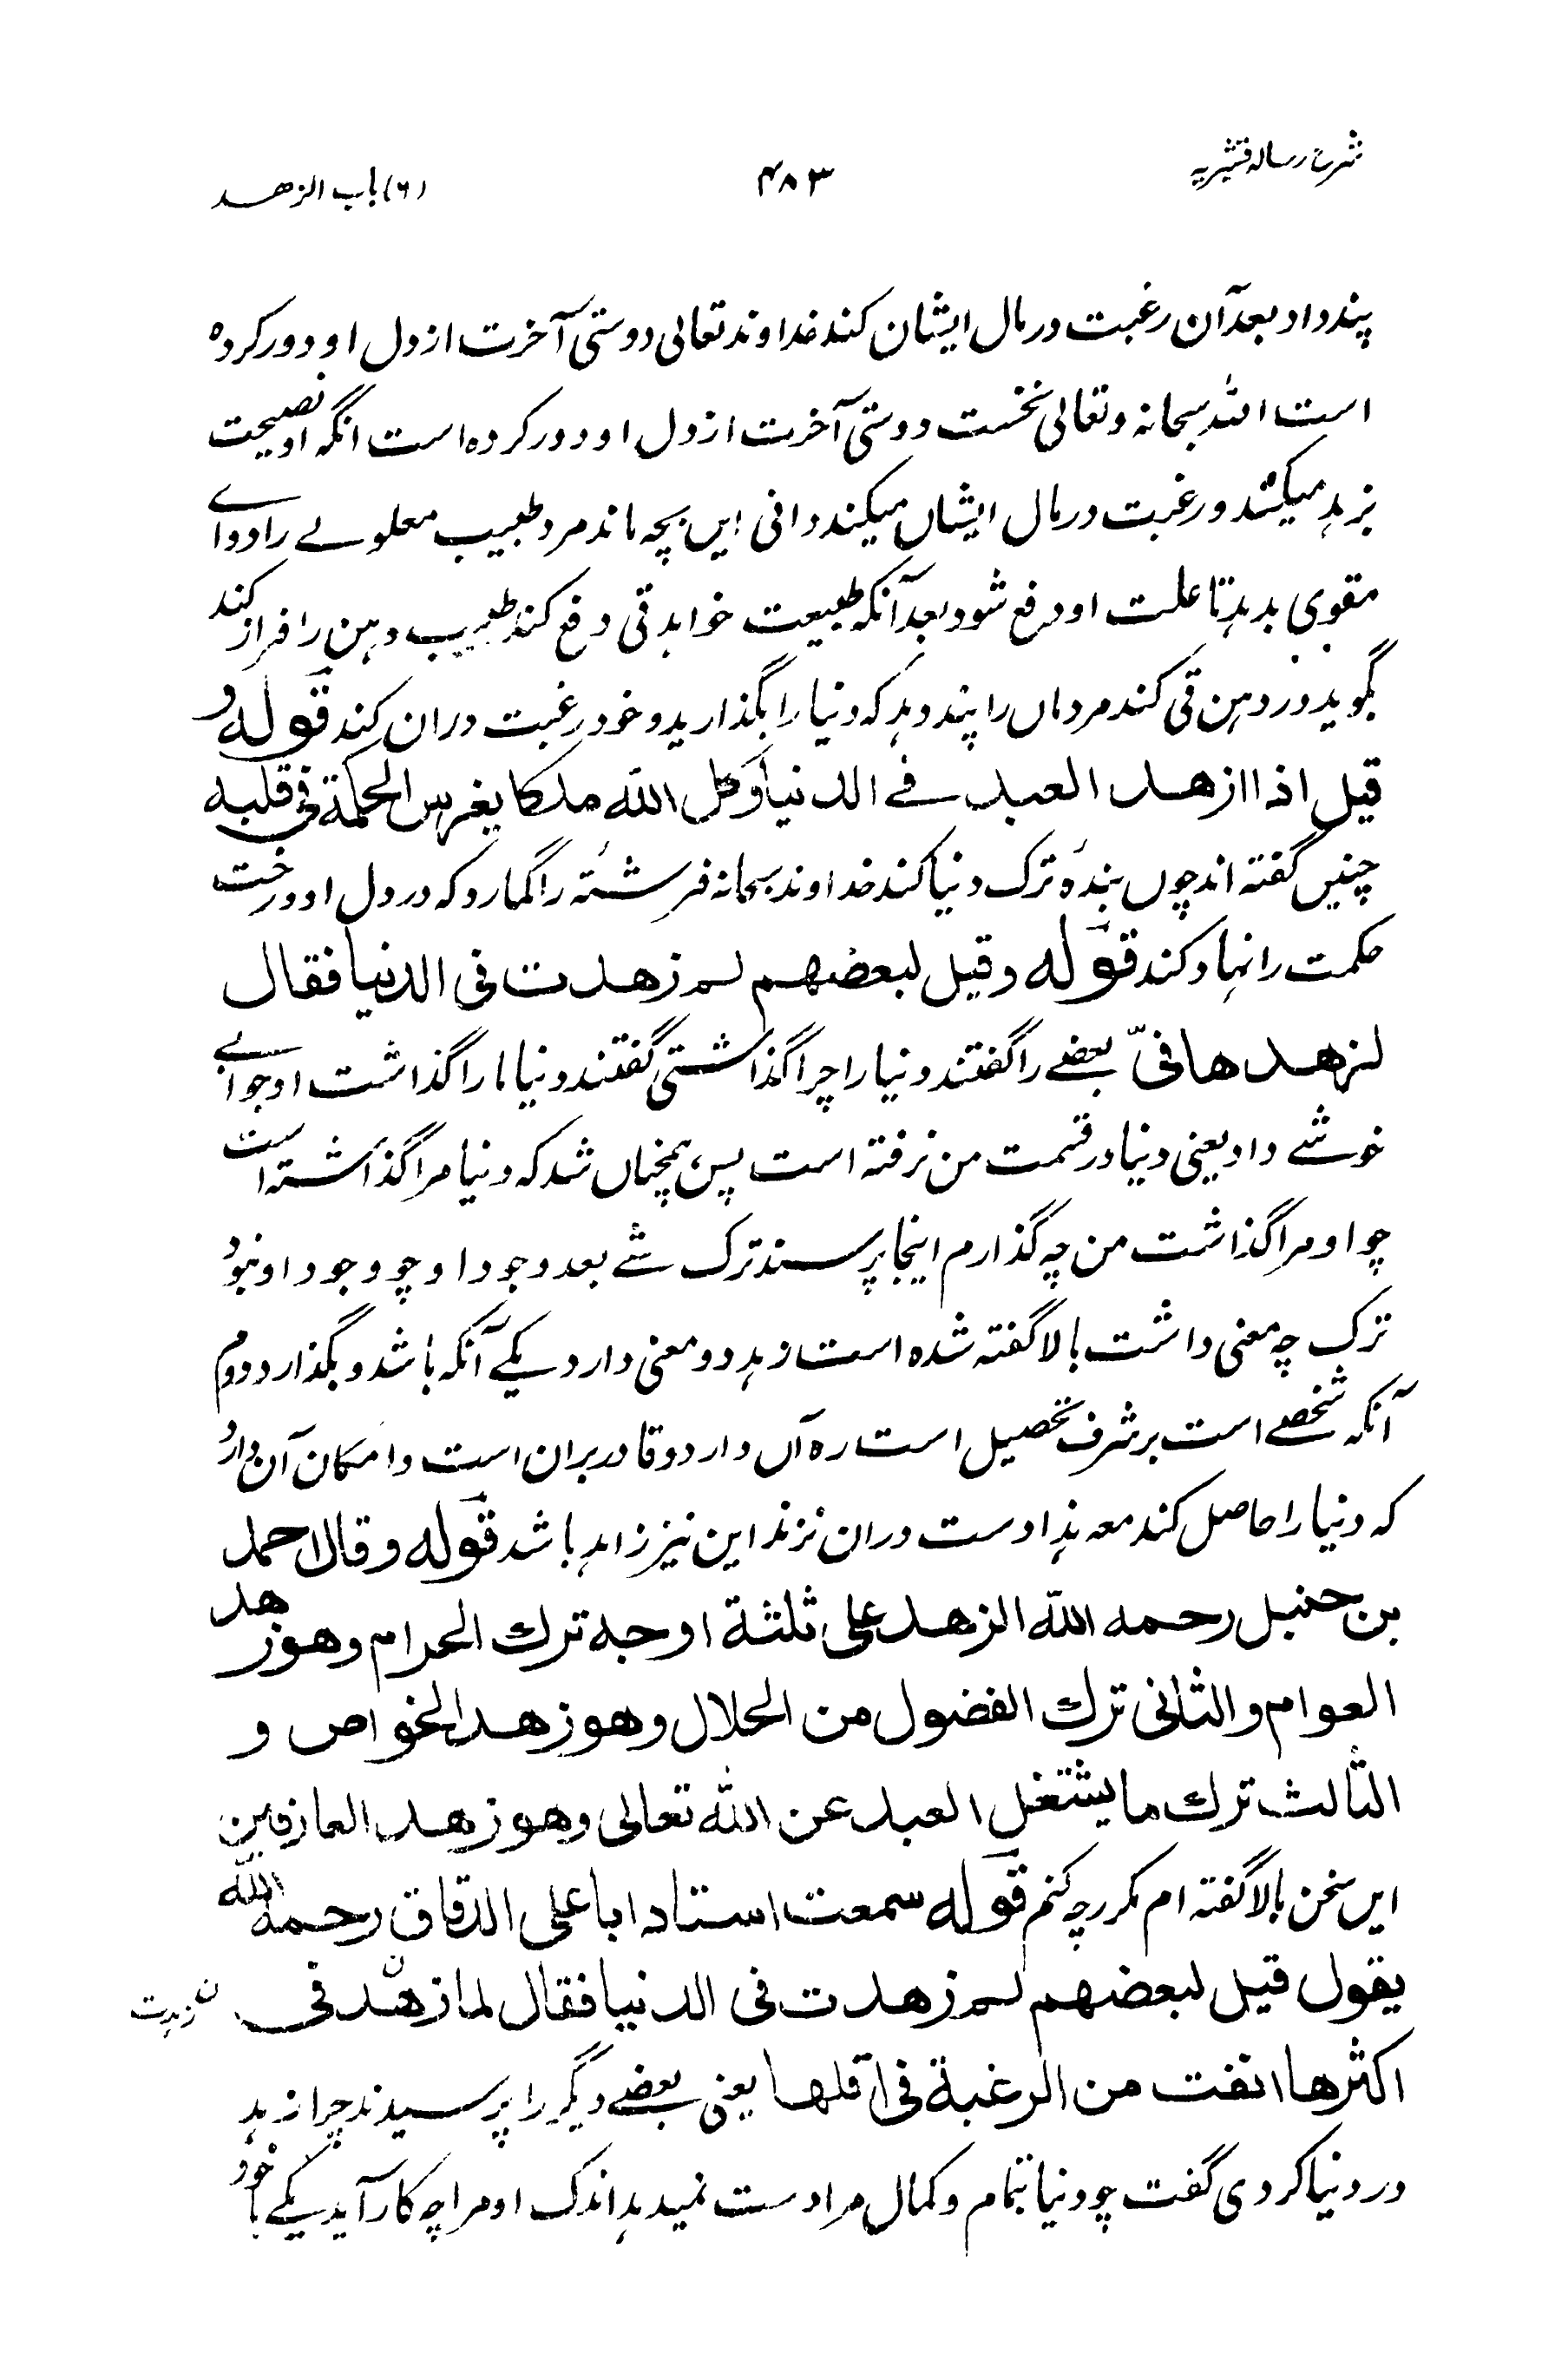 شرح رسالہ قشیریہ
۴۸۳
(۶) باب الزهد
پند داد بعد آن رغبت در مال ایشان کند خداوند تعالی دوستی آخرت از دل او دور کرده
است اللہ سبحانہ و تعالی نخست دوستی آخرت از دل او دور کرده است انگہ او نصیحت
بزہد میکند و رغبت در مال ایشاں میکند دانی ایں بچہ ماند مرد طبیب معلولے را دوائے
مقوی بدہد تا علت او دفع شود بعد آنکہ طبیعت خواہد قی دفع کند طبیب دہن را فراز کند
بگوید و در دہن قی کند مردماں را پند دہد کہ دنیا را بگذارید و خود رغبت دران کند قوله و
قیل اذا ازهد العبد فے الدنیا وکل الله ملكا یغرس الحكمة فی قلبه
چنیں گفتہ اند چوں بندۂ ترک دنیا کند خداوند سبحانہ فرشتۂ را گمارد کہ در دل او درخت
حکمت را نہاد کند قوله وقیل لبعضهم لم زهدت فی الدنیا فقال
لزهدها فیّ بعضے را گفتند دنیا را چرا گذاشتی گفتند دنیا ما را گذاشت او جوابے
خوشے داد یعنی دنیا در قسمت من نرفتہ است پس ہمچناں شد کہ دنیا مرا گذاشتہ است
چو او مرا گذاشت من چہ گذارم اینجا پرسند ترک شے بعد وجود او چو وجود او نبود
ترک چہ معنی داشت بالا گفتہ شدہ است زہد دو معنی دارد یکے آنکہ باشد و بگذارد دوم
آنکہ شخصے است بر شرف تحصیل است رہ آں دارد و قادر بران است و امکان آن دارد
کہ دنیا را حاصل کند معہ ہذا دست دران نزند این نیز زاہد باشد قوله وقال احمد
بن حنبل رحمه الله الزهد علی ثلثة اوجه ترك الحرام وهو زهد
العوام والثانی ترك الفضول من الحلال وهو زهد الخواص و
الثالث ترك ما یشتغل العبد عن الله تعالی وهو زهد العارفین
ایں سخن بالا گفتہ ام مکرر چہ کنم قوله سمعت استاد ابا علی الدقاق رحمه الله
یقول قیل لبعضهم لم زهدت فی الدنیا فقال لما زهد ن فی
ن زہدت
اكثرها انفت من الرغبة فی اقلها یعنی بعضے دیگر را پرسیدند چرا زہد
در دنیا کردی گفت چو دنیا بتمام و کمال مرا دست نمیدہد اندک او مرا چہ کار آید یکے با خود